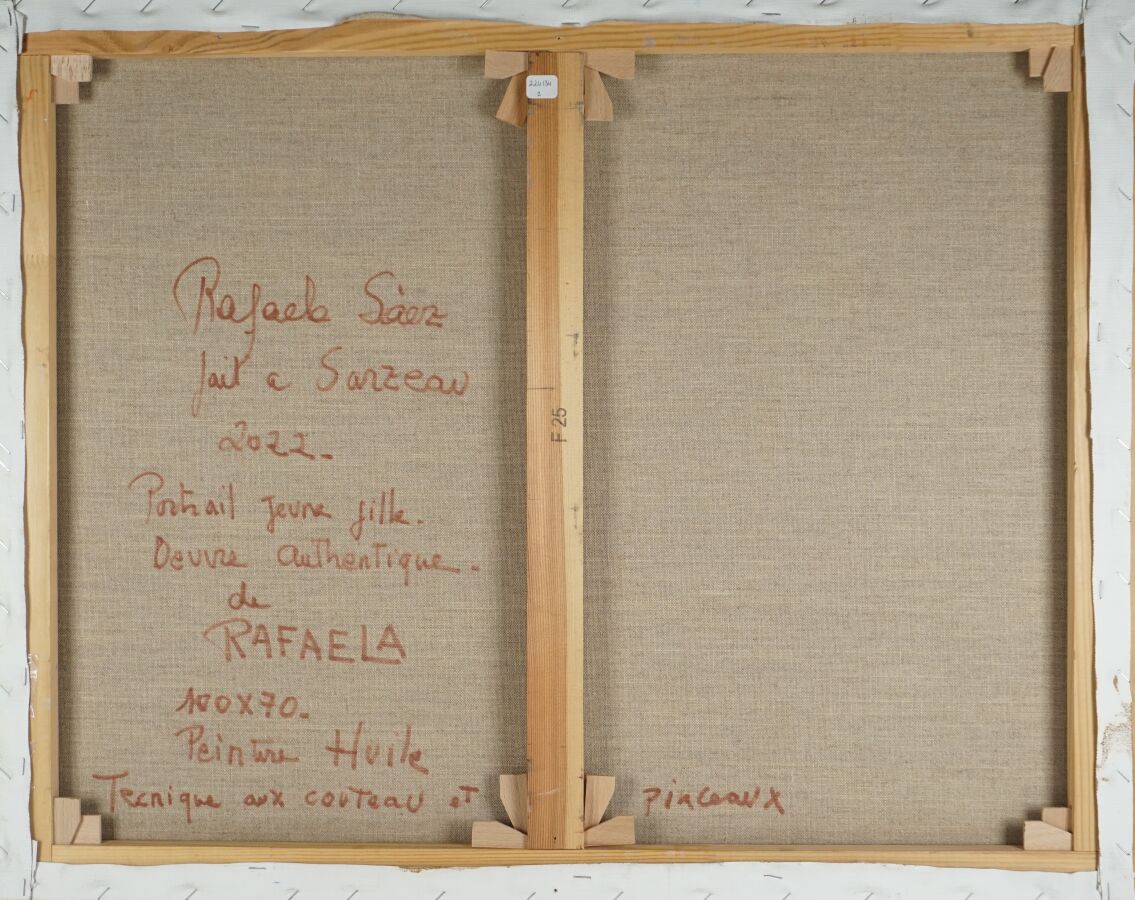 224134
2
F 25
Rafaela Sáez
fait a Sarzeau
2022.
Portrait jeune fille.
Oeuvre authentique.
de
RAFAELA
100X70.
Peinture Huile
Tecnique aux couteau et pinceaux